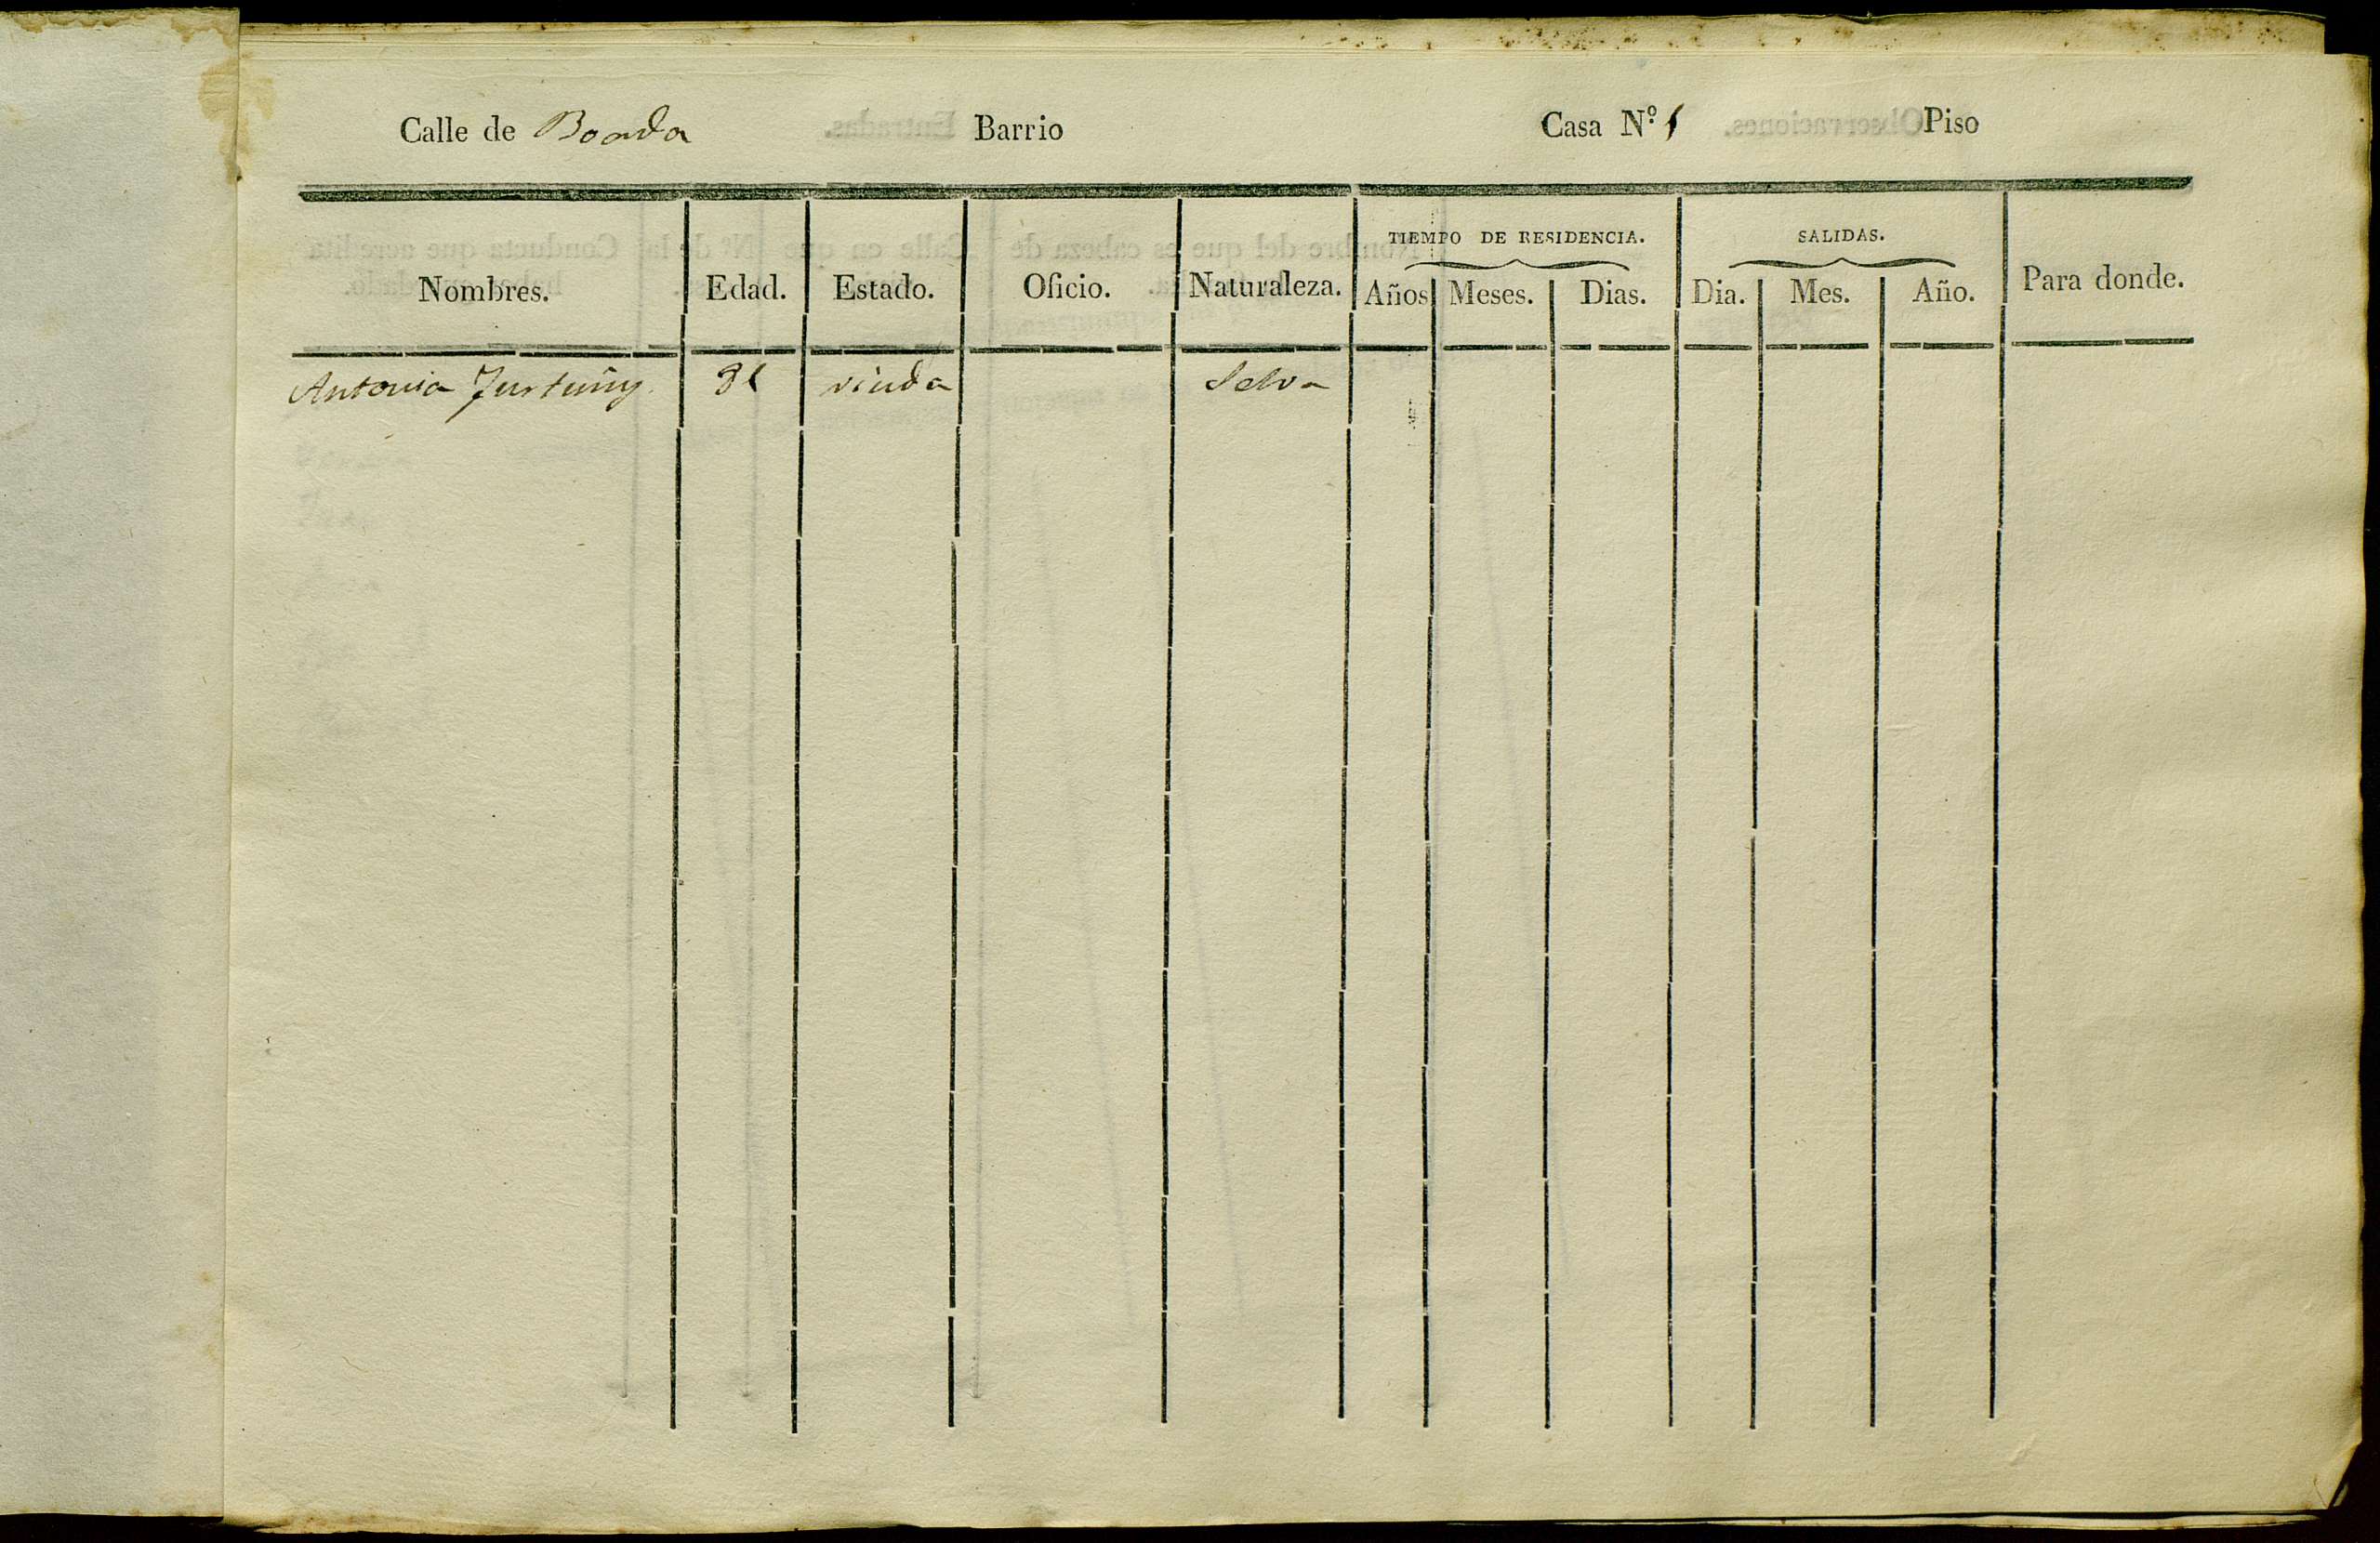 Calle de Boada Barrio Casa N.º 1 Piso
TIEMPO DE RESIDENCIA. SALIDAS.
Nombres. Edad. Estado. Oficio. Naturaleza. Años Meses. Dias. Dia. Mes. Año. Para donde.
Antonia viuda Selva